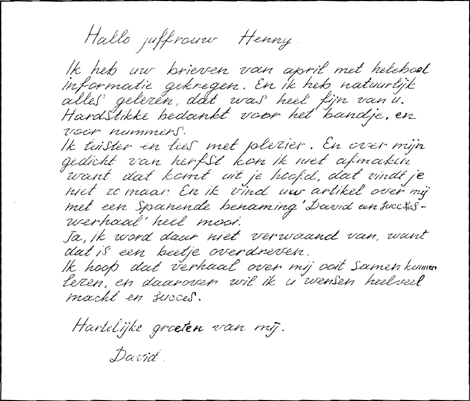 Hallo juffrouw Henny.
Ik heb uw brieven van april met heleboel
informatie gekregen. En ik heb natuurlijk
alles gelezen, dat was heel fijn van u.
Hardstikke bedankt voor het bandje, en
voor nummers.
Ik luister en lees met plezier. En over mijn
gedicht van herfst kon ik niet afmaken
want dat komt uit je hoofd, dat vindt je
niet zo maar. En ik vind uw artikel over mij
met een Spanende benaming 'David een succes-
werhaal' heel mooi.
Ja, ik word daar niet verwaand van, want
dat is een beetje overdreven.
Ik hoop dat verhaal over mij ooit samen kunnen
lezen, en daarover wil ik u wensen heelveel
macht en succes.
Hartelijke groeten van mij.
David.